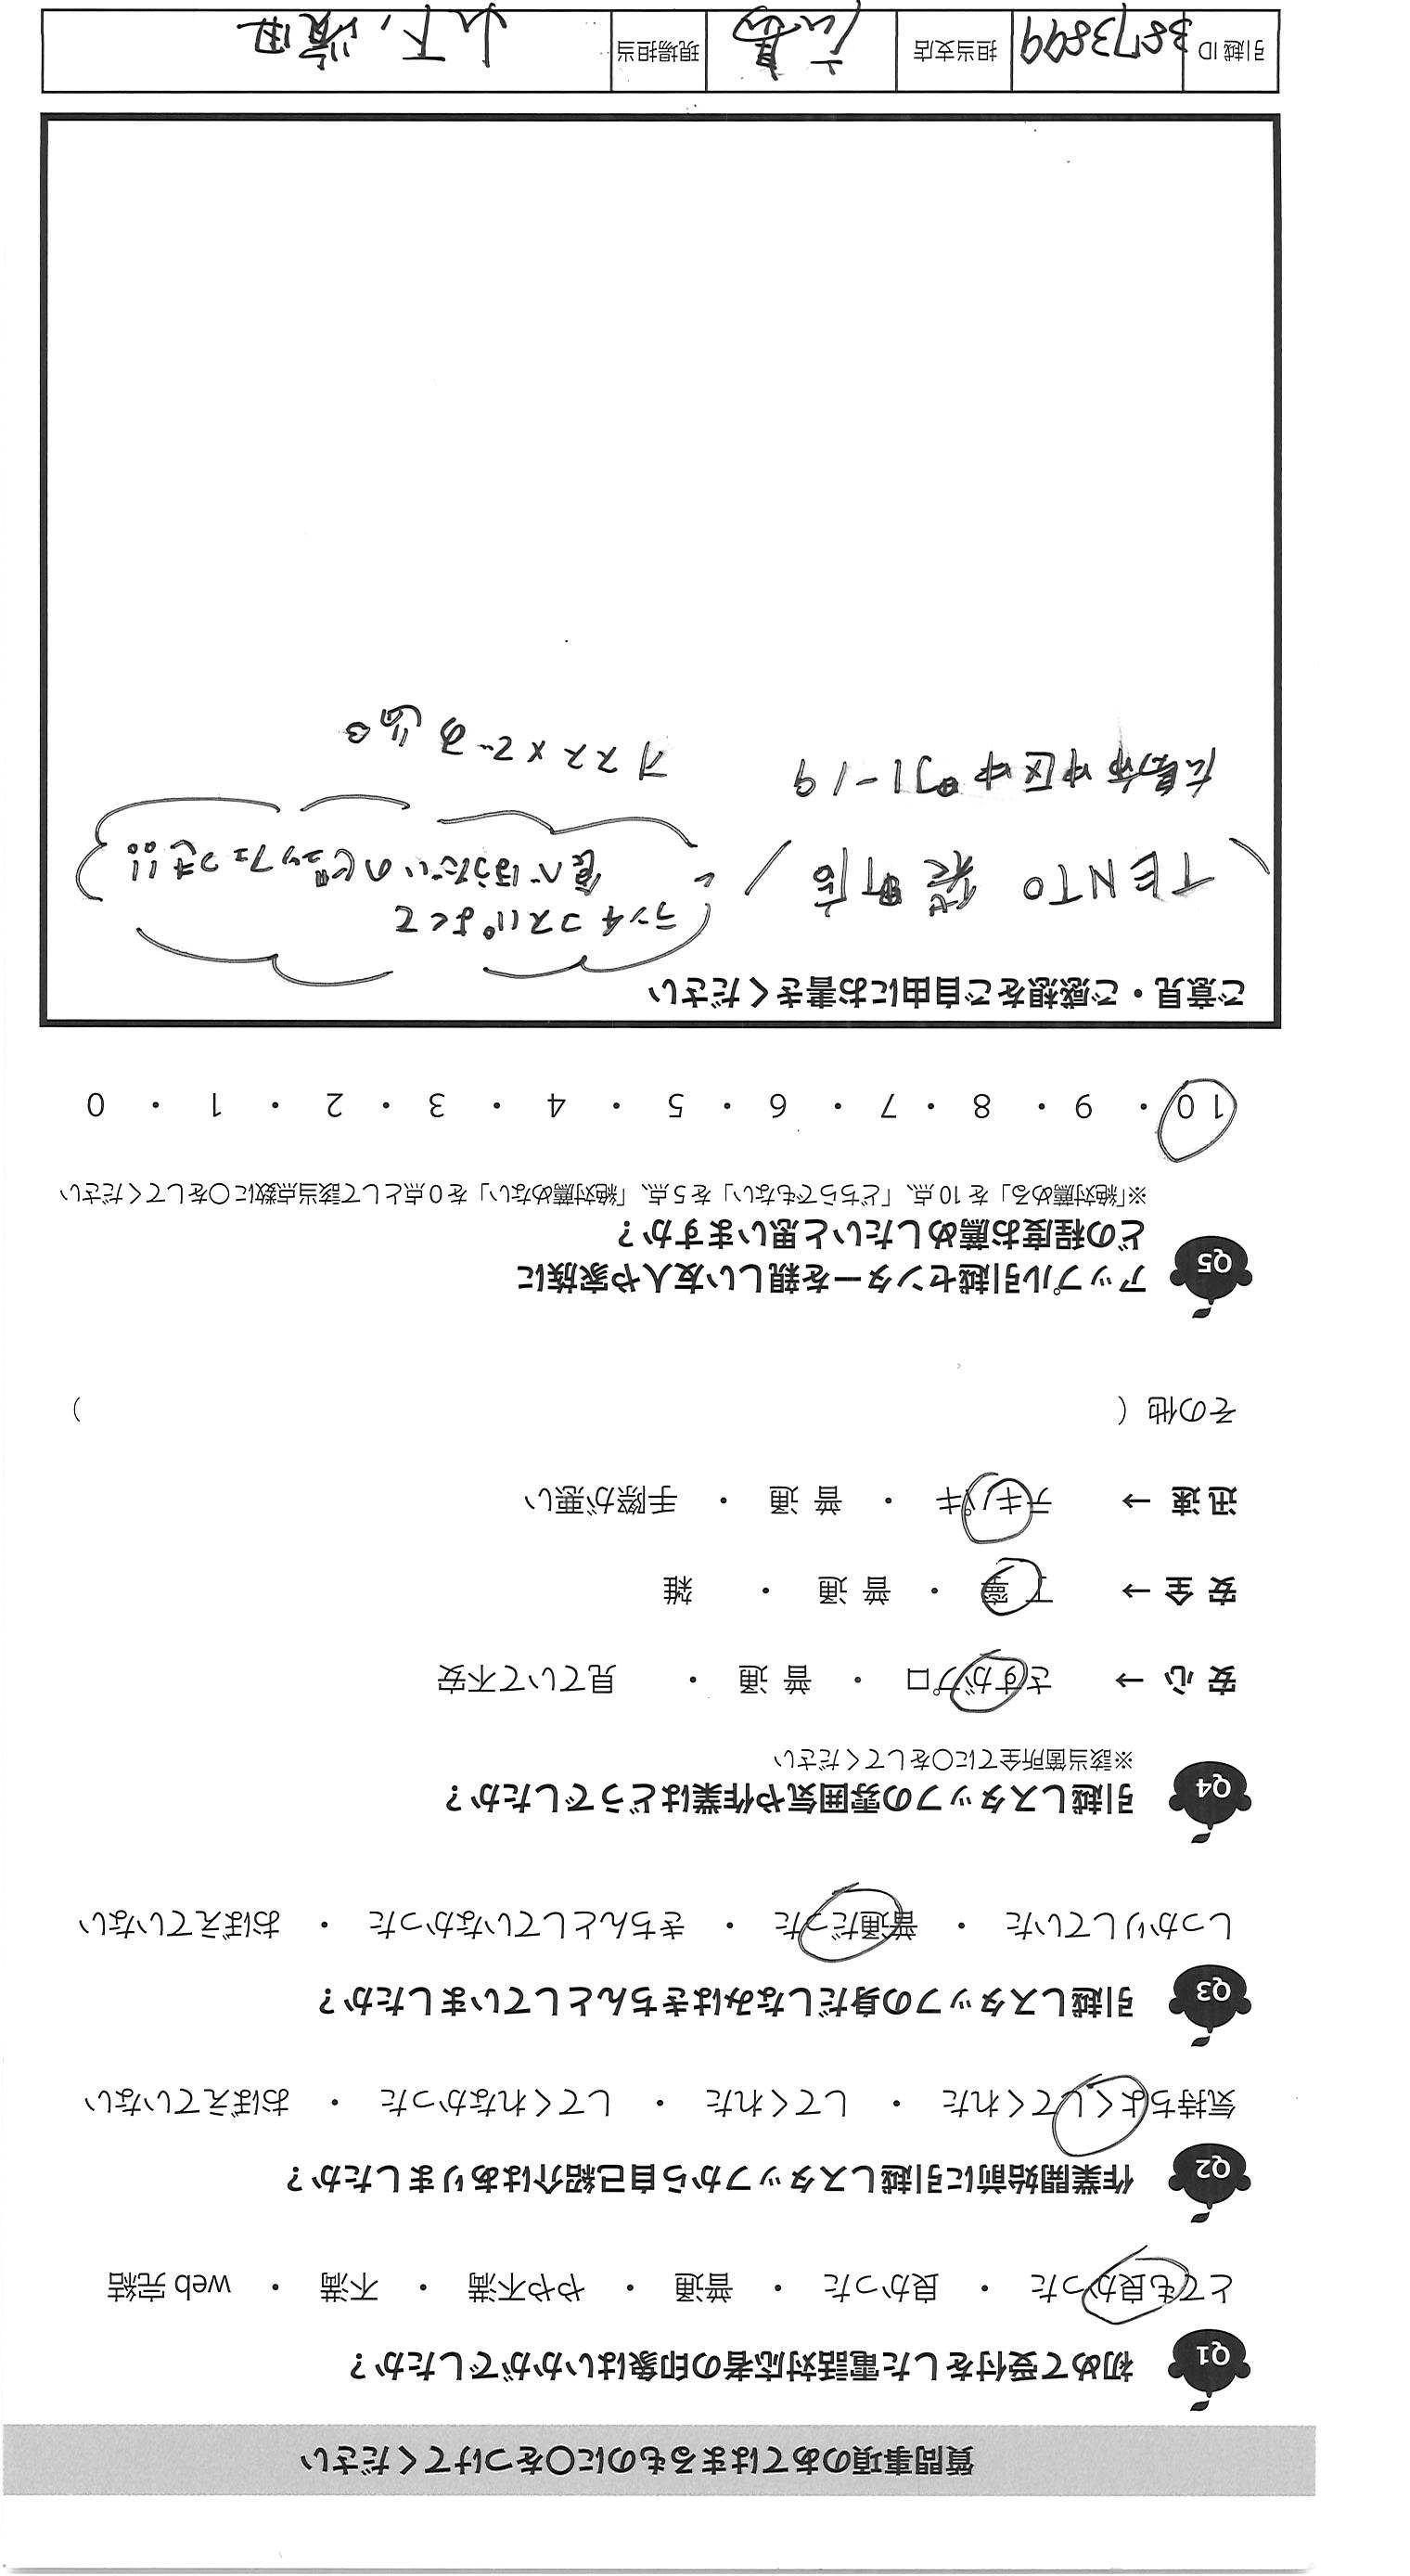 質問事項のあてはまるものに〇をつけてください
Q1 初めて受付をした電話対応者の印象はいかがでしたか？
とても良かった ・ 良かった ・ 普通 ・ やや不満 ・ 不満 ・ web 完結
Q2 作業開始前に引越しスタッフから自己紹介はありましたか？
気持ちよくしてくれた ・ してくれた ・ してくれなかった ・ おぼえていない
Q3 引越しスタッフの身だしなみはきちんとしていましたか？
しっかりしていた ・ 普通だった ・ きちんとしていなかった ・ おぼえていない
Q4 引越しスタッフの雰囲気や作業はどうでしたか？
※該当箇所全てに〇をしてください
安心 → さすがプロ ・ 普通 ・ 見ていて不安
安全 → 丁寧 ・ 普通 ・ 雑
迅速 → テキパキ ・ 普通 ・ 手際が悪い
その他（ ）
Q5 アップル引越センターを親しい友人や家族に
どの程度お薦めしたいと思いますか？
※「絶対薦める」を 10 点、「どちらでもない」を 5 点、「絶対薦めない」を 0 点として該当点数に〇をしてください
10 ・ 9 ・ 8 ・ 7 ・ 6 ・ 5 ・ 4 ・ 3 ・ 2 ・ 1 ・ 0
ご意見・ご感想をご自由にお書きください
ランチコスパよくて
\ TENTO 袋町店 / 食べほうだいのビュッフェつき!!
広島市中区中町1-19 オススメです
引越 ID 3873899 担当支店 広島 現場担当 山下,濱田